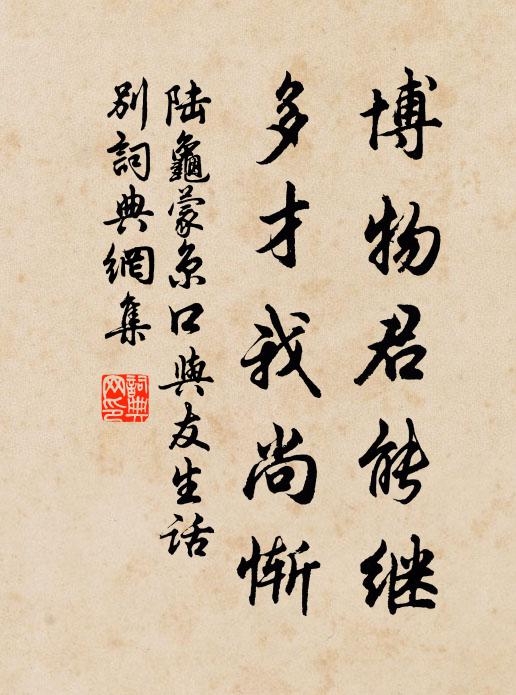 博物君能继
多才我尚惭
陆龜蒙京口與友生话
别詞典網集
詞典
网印